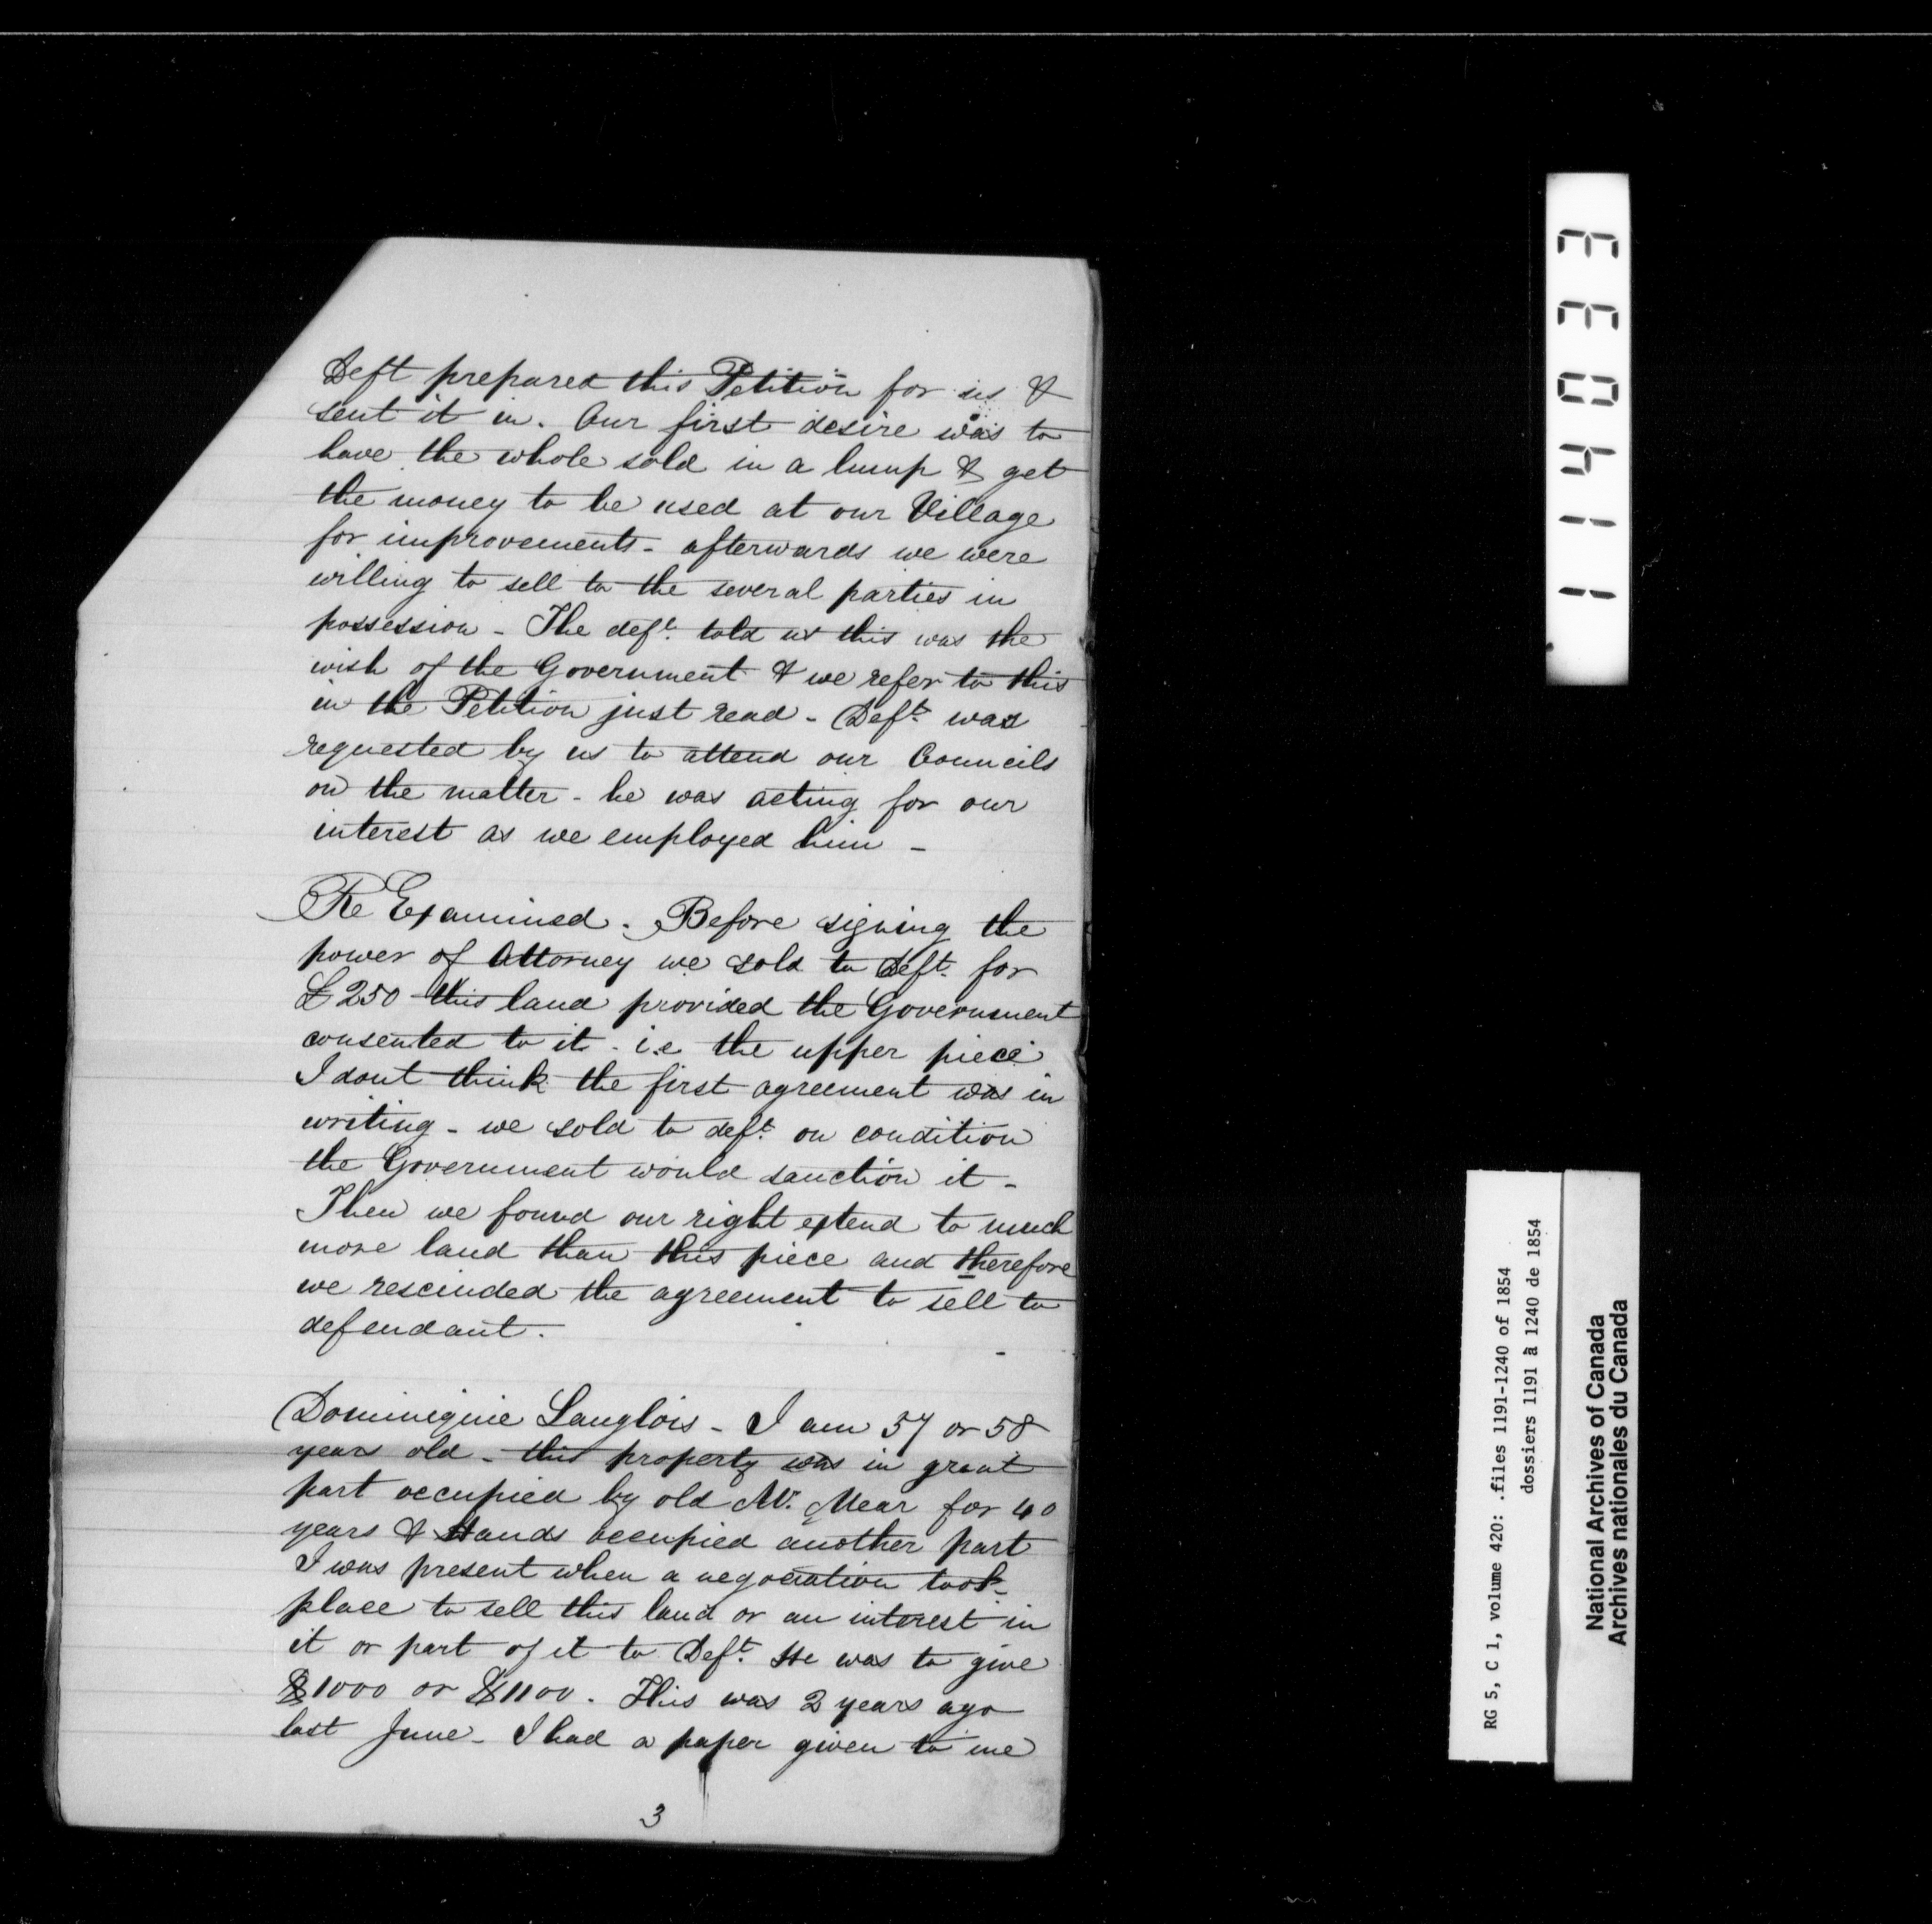 Deft prepared this Petition for us &
sent it in. Our first desire was to
have the whole sold in a lump & get
the money to be used at our Village
for improvements - afterwards we were
willing to sell to the several parties in
possession - The deft. told us this was the
wish of the Government & we refer to this
in the Petition just read - Deft. was
requested by us to attend our Councils
on the matter - he was acting for our
interest as we employed him -
Re Examined. Before signing the
power of Attorney we sold to Deft. for
£250 this land provided the Government
consented to it - i.e the upper piece
I dont think the first agreement was in
writing - we sold to deft. on condition
the Government would sanction it -
Then we found our right extend to much
more land than this piece and therefore
we rescinded the agreement to sell to
defendant.
Dominique Langlois - I am 57 or 58
years old - this property was in great
part occupied by old Mr. Mear for 40
years & Hands occupied another part
I was present when a negociation took
place to sell this land or an interest in
it or part of it to Deft. He was to give
$1000 or $1100. This was 2 years ago
last June - I had a paper given to me
3
114033
RG 5, C 1, volume 420: .files 1191-1240 of 1854
dossiers 1191 à 1240 de 1854
National Archives of Canada
Archives nationales du Canada